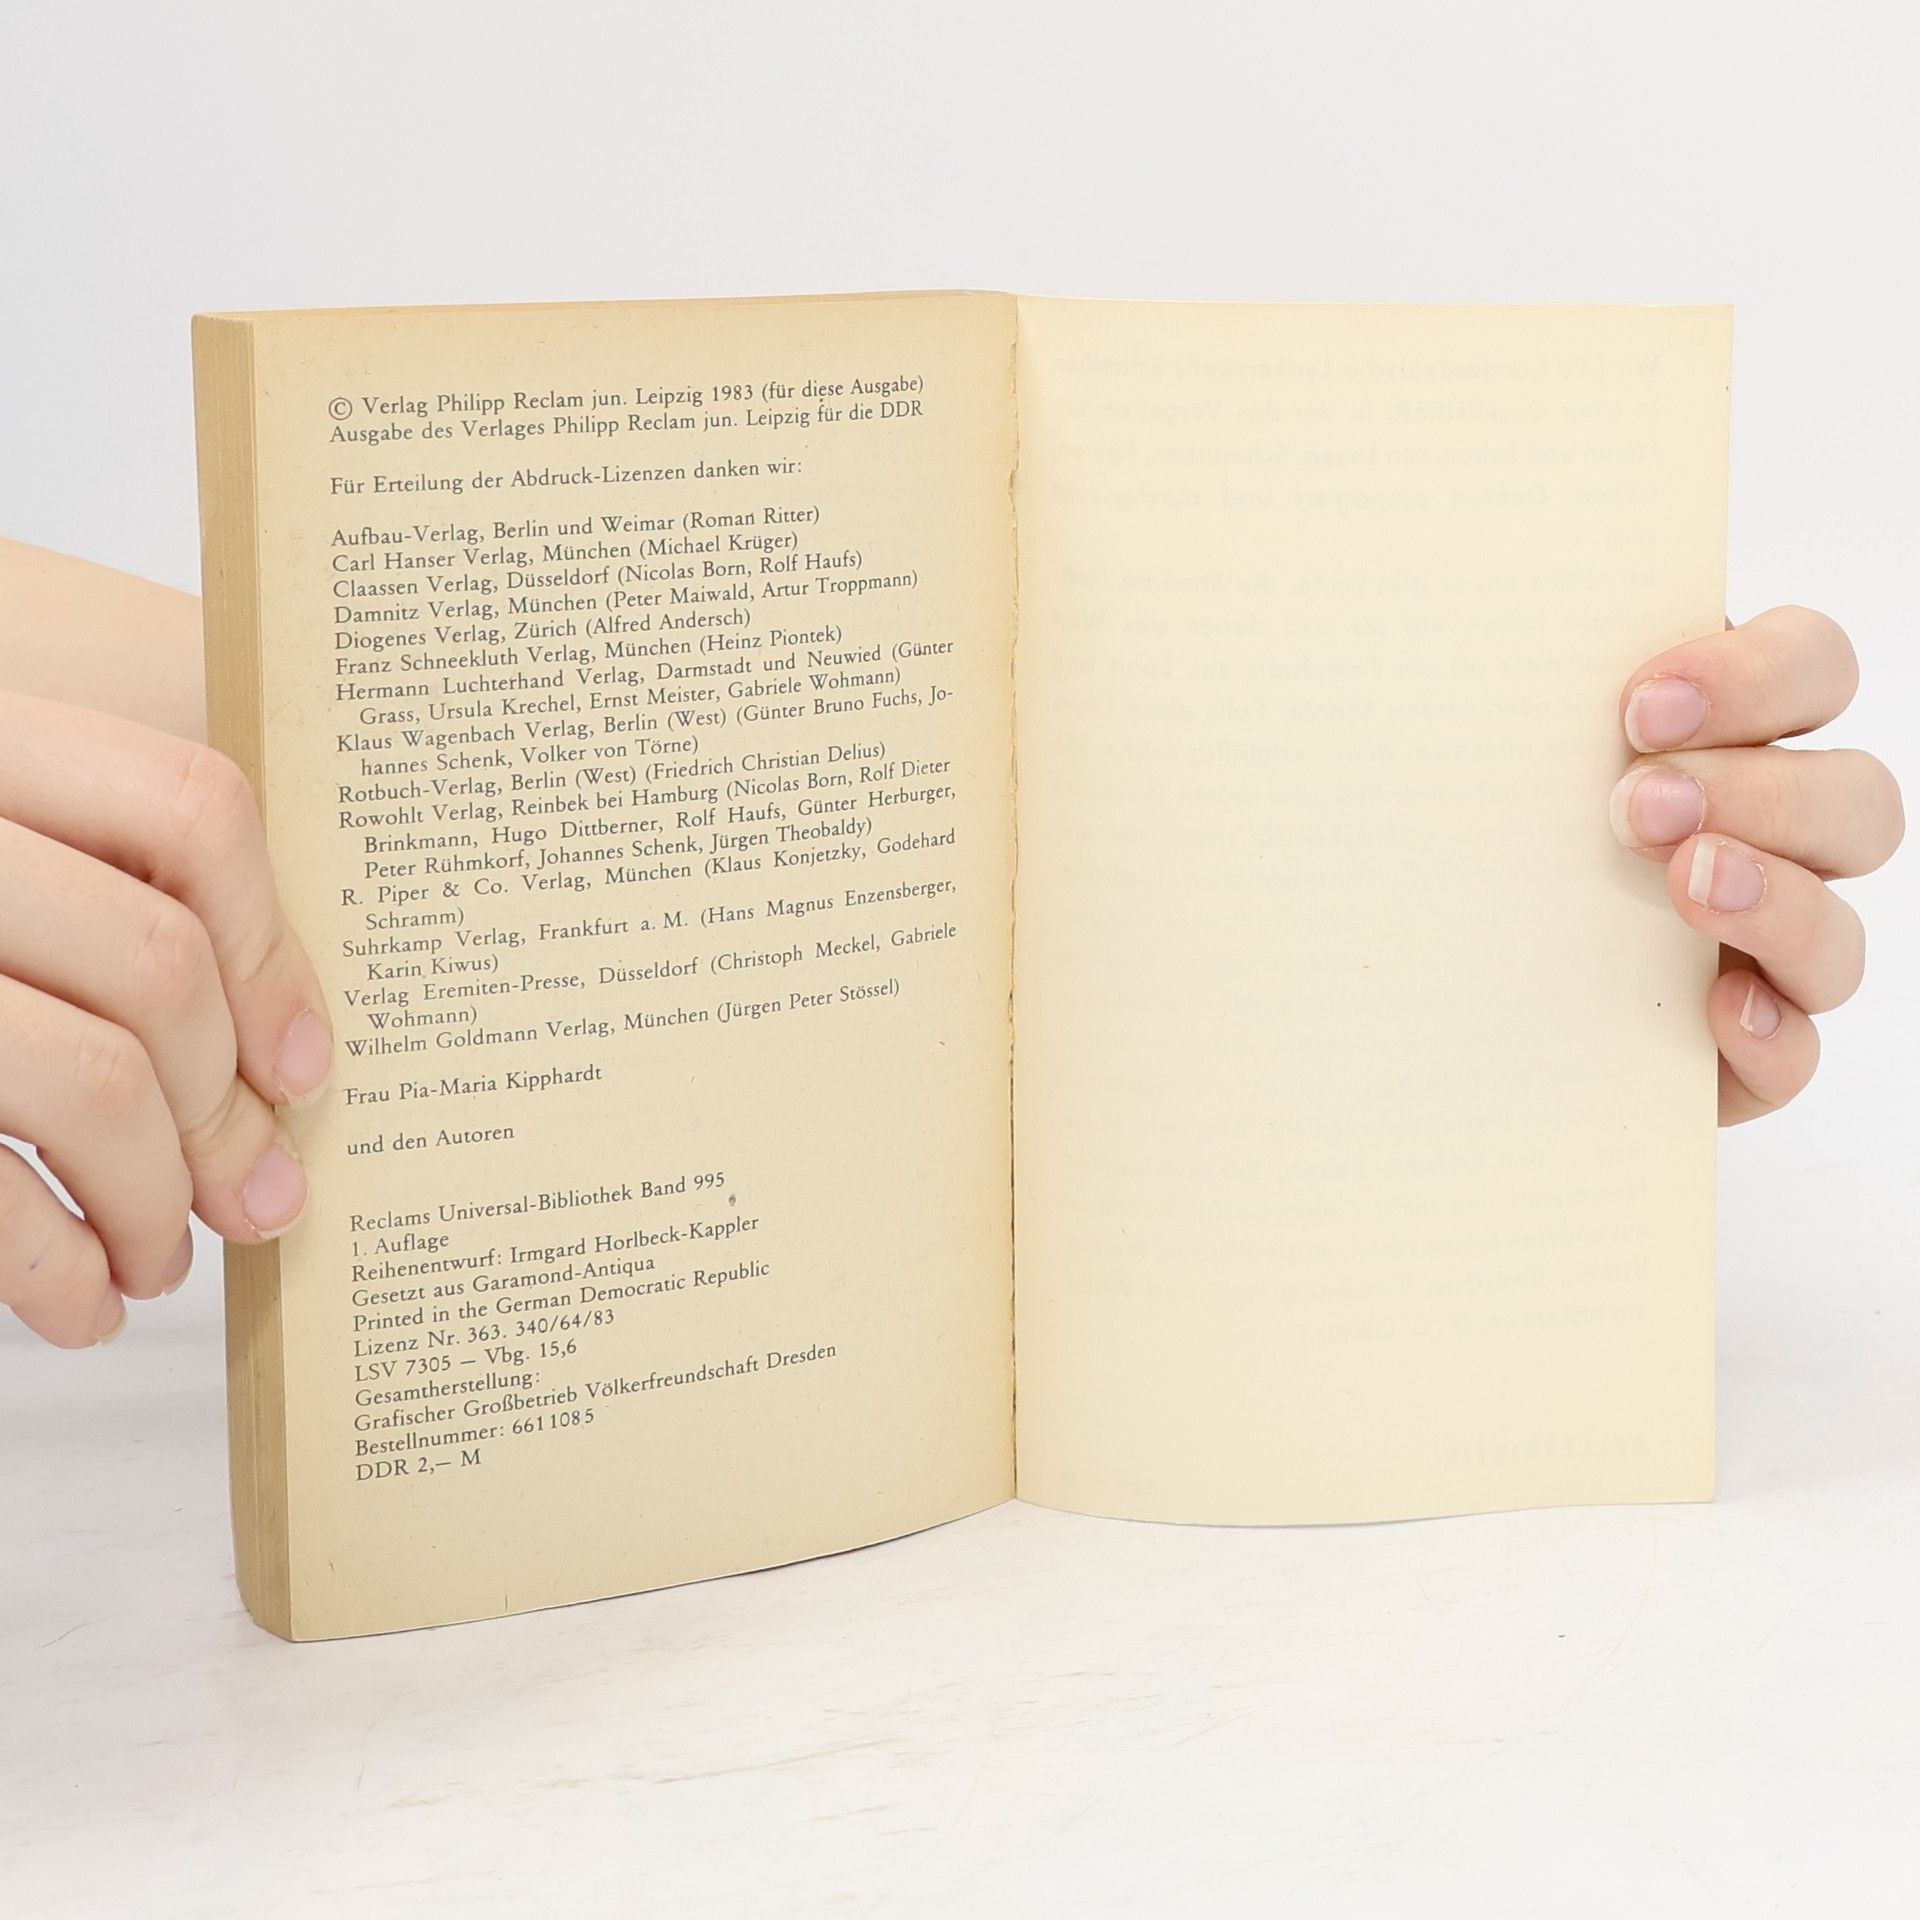 © Verlag Philipp Reclam jun. Leipzig 1983 (für diese Ausgabe)
Ausgabe des Verlages Philipp Reclam jun. Leipzig für die DDR
Für Erteilung der Abdruck-Lizenzen danken wir:
Aufbau-Verlag, Berlin und Weimar (Roman Ritter)
Carl Hanser Verlag, München (Michael Krüger)
Claassen Verlag, Düsseldorf (Nicolas Born, Rolf Haufs)
Damnitz Verlag, München (Peter Maiwald, Artur Troppmann)
Diogenes Verlag, Zürich (Alfred Andersch)
Franz Schneekluth Verlag, München (Heinz Piontek)
Hermann Luchterhand Verlag, Darmstadt und Neuwied (Günter
Grass, Ursula Krechel, Ernst Meister, Gabriele Wohmann)
Klaus Wagenbach Verlag, Berlin (West) (Günter Bruno Fuchs, Jo-
hannes Schenk, Volker von Törne)
Rotbuch-Verlag, Berlin (West) (Friedrich Christian Delius)
Rowohlt Verlag, Reinbek bei Hamburg (Nicolas Born, Rolf Dieter
Brinkmann, Hugo Dittberner, Rolf Haufs, Günter Herburger,
Peter Rühmkorf, Johannes Schenk, Jürgen Theobaldy)
R. Piper & Co. Verlag, München (Klaus Konjetzky, Godehard
Schramm)
Suhrkamp Verlag, Frankfurt a. M. (Hans Magnus Enzensberger,
Karin Kiwus)
Verlag Eremiten-Presse, Düsseldorf (Christoph Meckel, Gabriele
Wohmann)
Wilhelm Goldmann Verlag, München (Jürgen Peter Stössel)
Frau Pia-Maria Kipphardt
und den Autoren
Reclams Universal-Bibliothek Band 995
1. Auflage
Reihenentwurf: Irmgard Horlbeck-Kappler
Gesetzt aus Garamond-Antiqua
Printed in the German Democratic Republic
Lizenz Nr. 363. 340/64/83
LSV 7305 – Vbg. 15,6
Gesamtherstellung:
Grafischer Großbetrieb Völkerfreundschaft Dresden
Bestellnummer: 661 108 5
DDR 2,– M